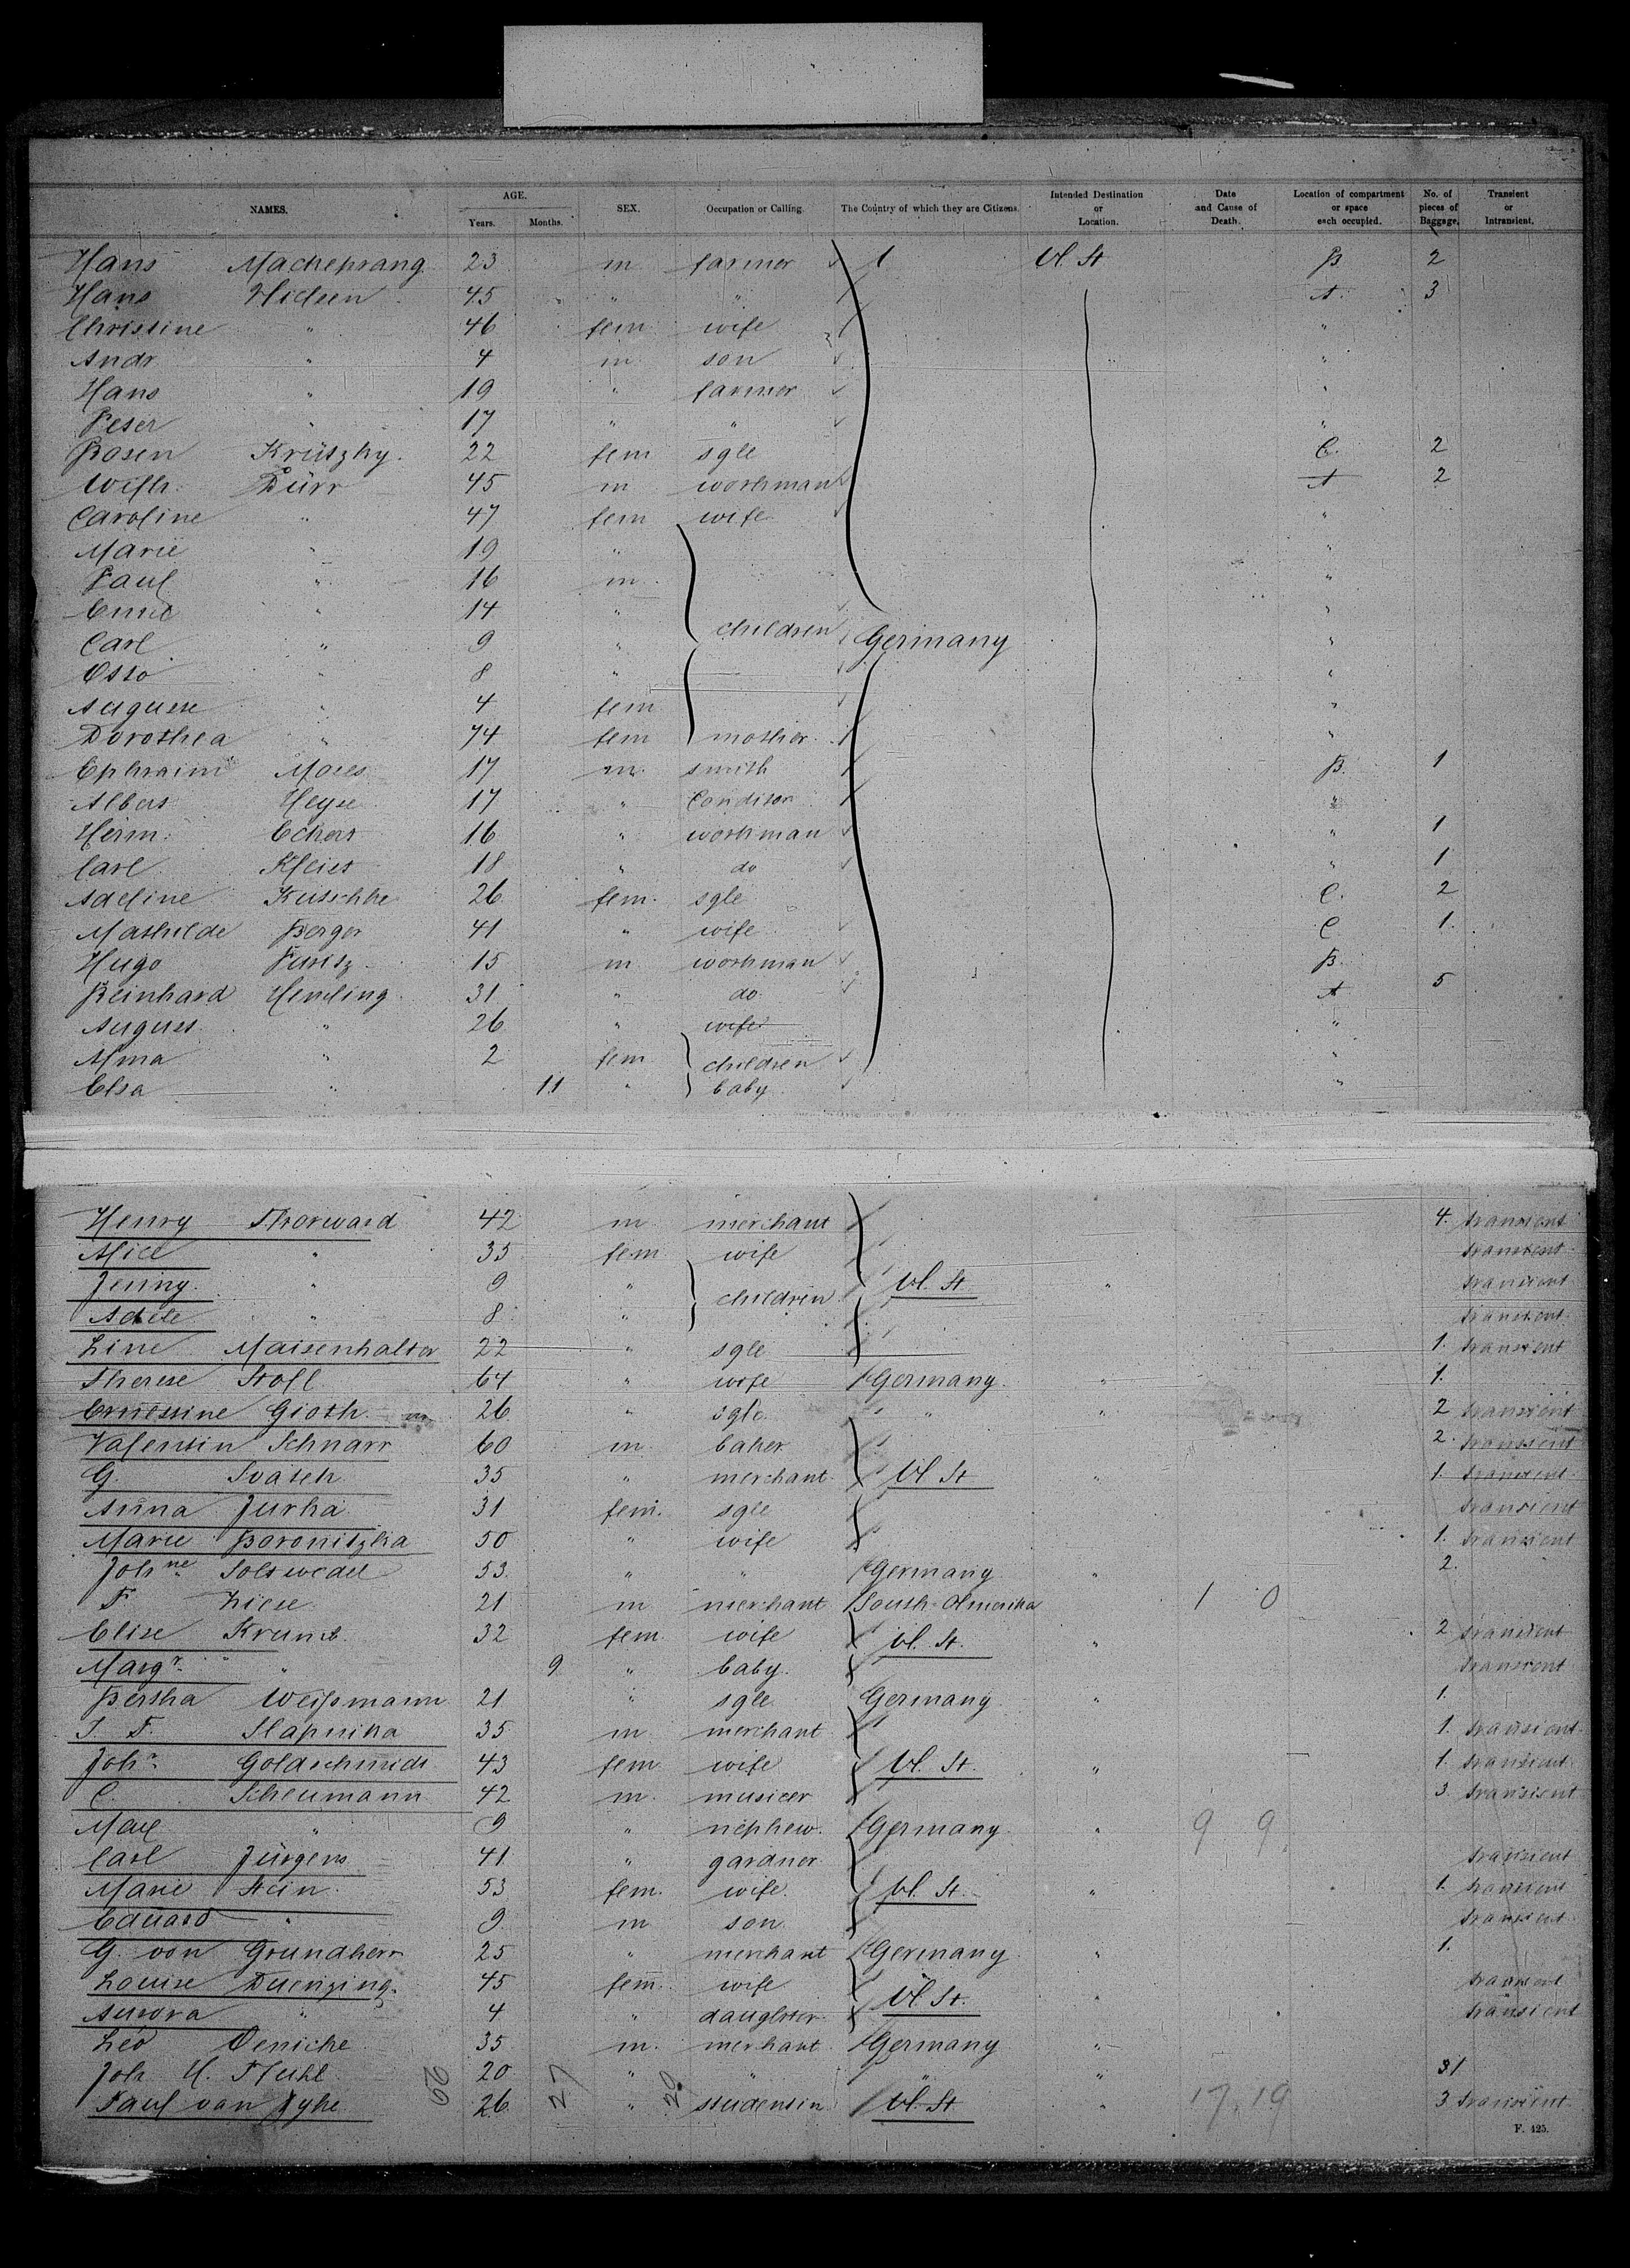 NAMES. AGE. Years. Months. SEX. Occupation or Calling. The Country of which they are Citizens. Intended Destination or Location. Date and Cause of Death. Location of compartment or space each occupied. No. of pieces of Baggage. Transient or Intransient.
Hans Macheprang 23 m farmer U. St B. 2
Hans 45 " " A. 3
Christine " 46 fem wife "
Andr. " 4 m son "
Hans " 19 " farmer "
Peter " 17 " " "
Rosen Krützky. 22 fem sgle C. 2
Wilh. Dürr 45 m workman A 2
Caroline " 47 fem wife "
Marie " 19 " "
Paul " 16 m "
Emil " 14 " "
Carl " 9 " children Germany "
Otto " 8 " "
Auguste " 4 fem "
Dorothea " 74 fem mother "
Ephraim Moses 17 m. smith B. 1
Albert Heyse 17 " Conditor "
Herm. Eckert 16 " workman " 1
Carl Kleist 18 " do " 1
Adeline Kuschke 26 fem. sgle C. 2
Mathilde Berger 41 " wife C 1.
Hugo 15 m workman B.
Reinhard Hemling 31 " do. A 5
August " 26 " wife "
Alma " 2 fem children "
Elsa " 11 " baby "
Henry Thorward 42 m merchant 4. transient
Alice " 35 fem wife transient
Jenny " 9 " children U. St. " transient
Adele " 8 " transient
Line Maisenhalter 22 " sgle 1. transient
Therese Stoll 64 " wife Germany. " 1.
Ernestine Gioth 26 " sgle. " " 2 transient
Valentin Schnarr 60 m. baker 2. transient
G. Svatek 35 " merchant. U. St " 1. transient
Anna Jurka 31 fem. sgle transient
Marie Boronitzka 50 " wife 1. transient
Johne. Soltwedel 53. " " Germany " 2.
F. Liese 21 m merchant South-Amerika 1 0
Elise Krumb. 32 fem. wife U. St. " 2 transient
Margr. " 9 " baby. transient
Bertha Weißmann 21 " sgle Germany. " 1.
J. F. Slapnika 35 m merchant 1. transient
Johr. Goldschmidt 43 fem wife U. St. " 1. transient
C. Scheumann 42 m. musicer 3 transient
Max " 9 " nephew. Germany. " 9 9
Carl Jürgens 41 " gardner transient
Marie Stein 53 fem. wife. U. St. " 1. transient
Eduard " 9 m son transient
G. von Grundherr 25 " merchant Germany. " 1.
Louise Duenzing. 45 fem. wife U. St. " transient
Aurora " 4 " daughter transient
Leo Deniche 35 m. merchant. Germany "
Joh H. Stuhl 20 " " " " 31
Paul van Dyke 26 " studentin U. St " 17. 19 3 transient
29 27 29
F. 425.